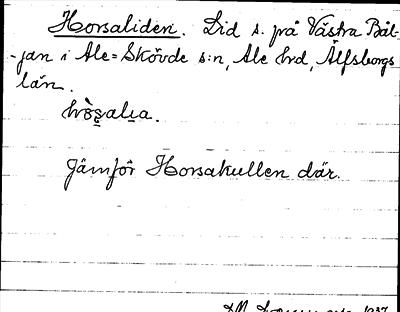 Horsaliden. Lid s. på Västra Båt-
-jan i Ale-Skövde s:n, Ale hrd, Älfsborgs
län.
Jämför Horsakullen där.
1937